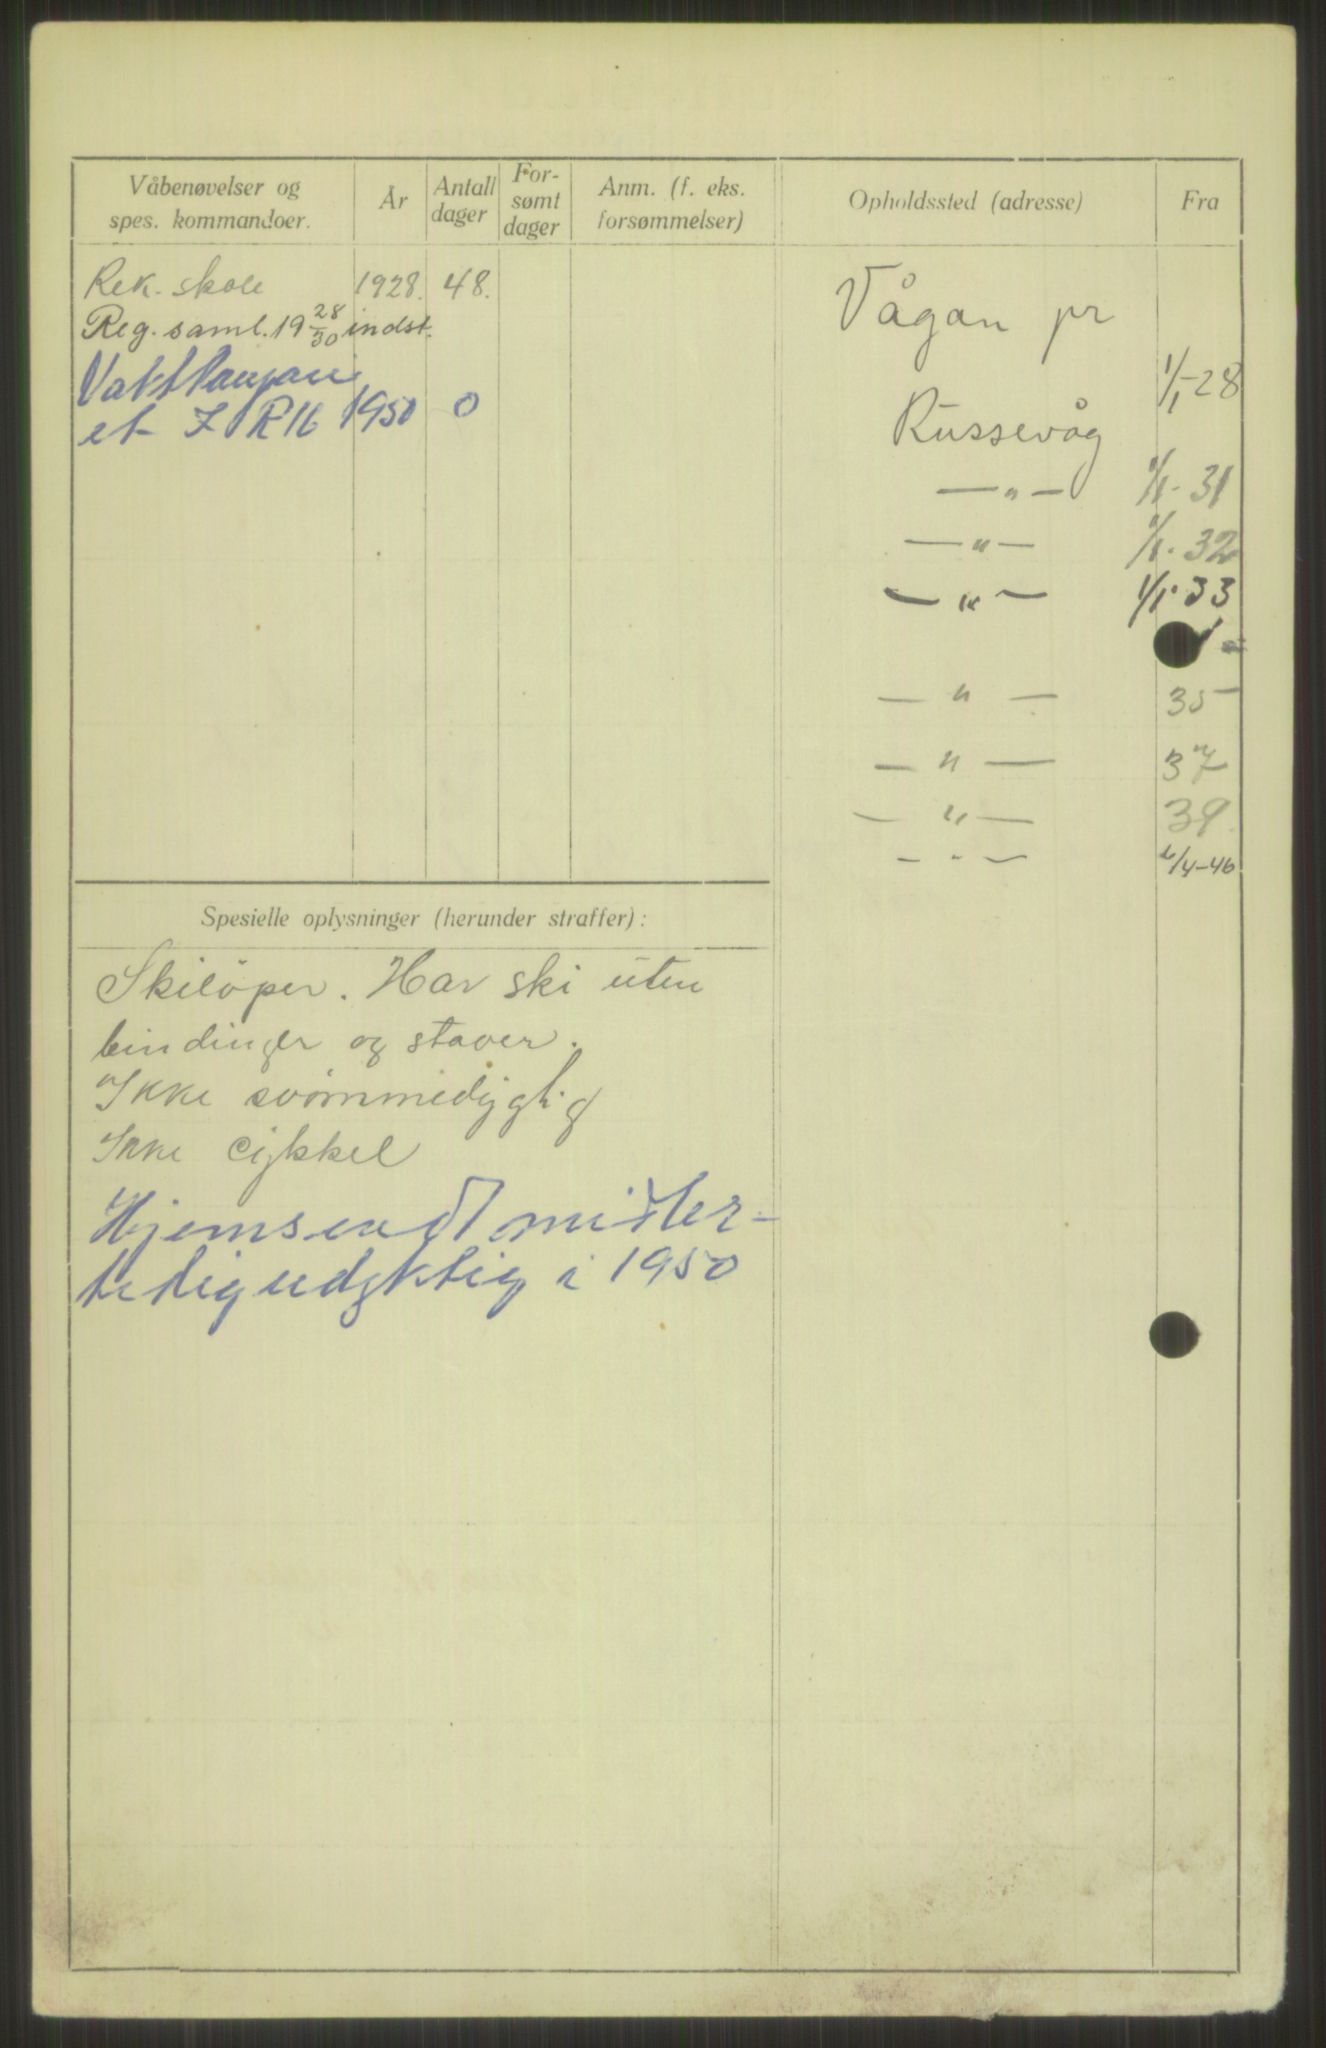 Våbenøvelser og
spes. kommandoer.
År
Antall
dager
For-
sømt
dager
Anm. (f. eks.
forsømmelser)
Opholdssted (adresse)
Fra
Rek. skole 1928. 48.
Reg. saml. 19 28/30 indst.
Vaktkompani
et I R 16 1950 0
Vågan pr
1/1-28
Russevåg
— " — 1/1- 31
— " — 1/1. 32
— " — 1/1. 33
— " — 35
— " — 37
— " — 39
— " — 4-46
Spesielle oplysninger (herunder straffer):
Skiløper. Har ski uten
bindinger og staver.
Ikke svømmedygtig
Ikke cykkel
Hjemsendt midler-
tidig udyktig i 1950